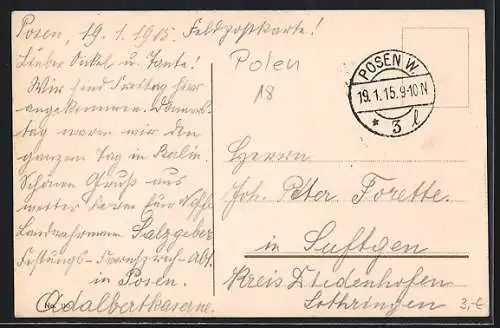 Posen, 19.1.1915. Feldpostkarte!
Lieber Onkel u. Tante!
Wir sind Freitag hier
angekommen. Donners-
tag waren wir den
ganzen Tag in Berlin.
Schönen Gruß aus
weiter Ferne Euer Neffe
Landwehrmann Salzgeber
Festungs-Fernsprech-Abt.
in Posen.
Adalbertkaserne.
Polen
18
POSEN W.
19.1.15.9-10N
* 3 l
Herrn
Joh. Peter Forette.
in Suftgen
Kreis Diedenhofen
Lothringen
3,-€